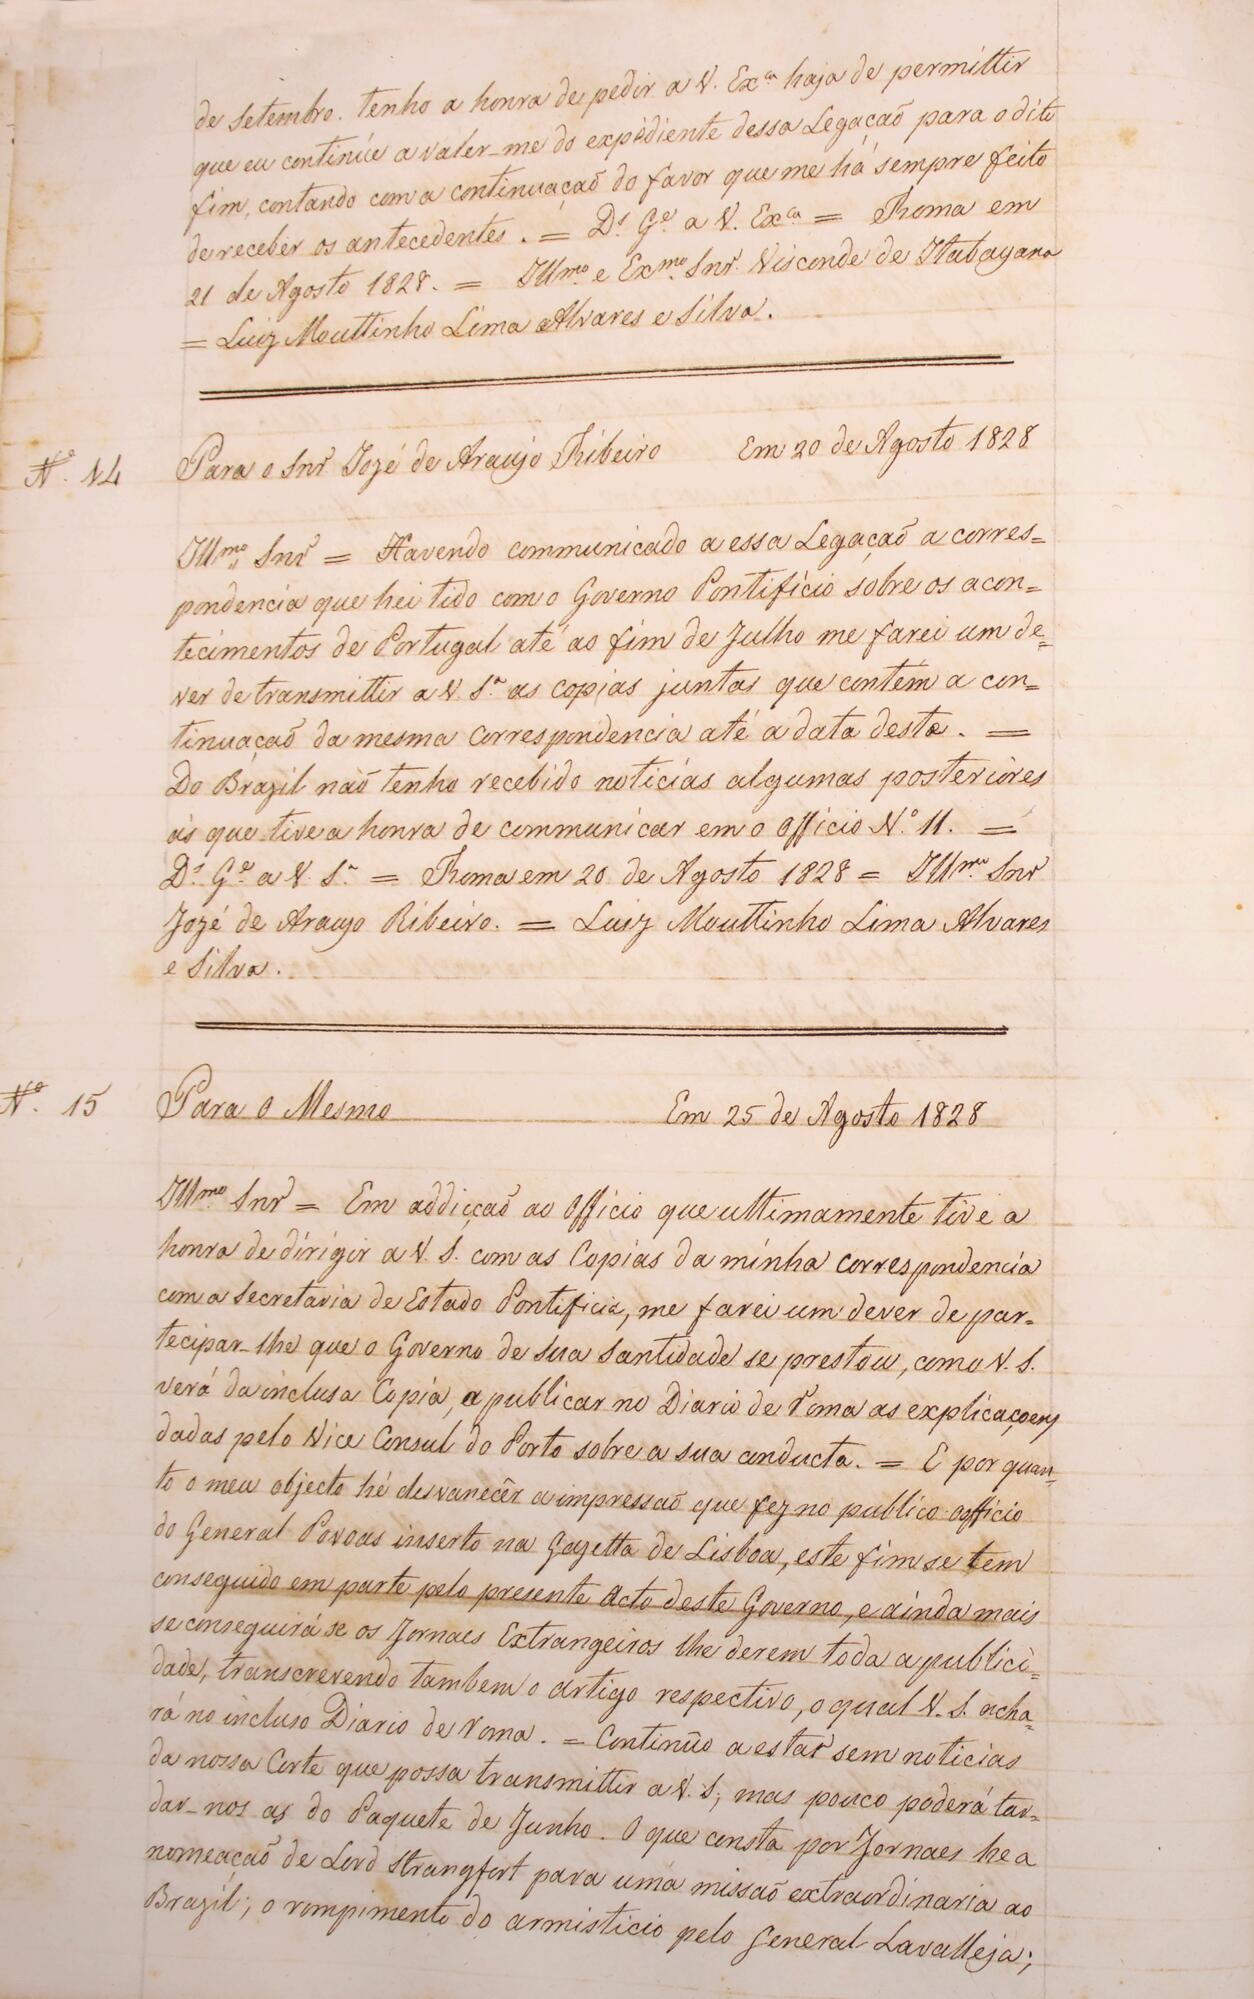 de Setembro. tenho a honra de pedir a V. Exª haja de permittir
que eu continúe a valer-me do expediente dessa Legaçaõ para o dito
fim, contando com a continuaçaõ do favor que me há sempre feito
de receber os antecedentes. = Dˢ Gᵉ a V. Exᶜⁱᵃ = Roma em
21 de Agosto 1828. = Illᵐᵒ e Exᵐᵒ Snʳ Visconde de Itabayana
= Luiz Mouttinho Lima Alvares e Silva.
Nº. 14 Para o Snʳ Jozé de Araujo Ribeiro Em 20 de Agosto 1828
Illᵐᵒ Snʳ = Havendo communicado a essa Legaçaõ a corres=
pondencia que hei tido com o Governo Pontificio sobre os acon=
tecimentos de Portugal até ao fim de Julho me farei um de=
ver de transmittir a V. Sª as copias juntas que contem a con=
tinuaçaõ da mesma correspondencia até a data desta. =
Do Brazil naõ tenho recebido noticias algumas posteriores
ás que tive a honra de communicar em o Officio Nº 11. =
Dˢ Gᵉ a V. Sª = Roma em 20 de Agosto 1828 = Illᵐᵒ Snʳ
Jozé de Araujo Ribeiro. = Luiz Mouttinho Lima Alvares
e Silva.
Nº. 15 Para o Mesmo Em 25 de Agosto 1828
Illᵐᵒ Snʳ = Em addicçaõ ao Officio que ultimamente tive a
honra de dirigir a V. S. com as Copias da minha correspondencia
com a Secretaria de Estado Pontificia, me farei um dever de par=
tecipar-lhe que o Governo de Sua Santidade se prestou, como V. S.
verá da inclusa Copia, a publicar no Diario de Roma as explicaçoens
dadas pelo Vice Consul do Porto sobre a sua conducta. = E por quan=
to o meu objecto hé desvanecêr a impressaõ que fez no publico o officio
do General Povoas inserto na Gazetta de Lisboa, este fim se tem
conseguido em parte pelo presente Acto deste Governo, e ainda mais
se conseguirá se os Jornaes Extrangeiros lhe derem toda a publici=
dade, transcrevendo tambem o artigo respectivo, o qual V. S. acha=
rá no incluso Diario de Roma. = Continûo a estar sem noticias
da nossa Corte que possa transmittir a V. S; mas pouco poderá tar=
dar-nos as do Paquete de Junho. O que consta por Jornaes he a
nomeaçaõ de Lord Strangfort para uma missaõ extraordinaria ao
Brazil; o rompimento do armisticio pelo General Lavalleja;